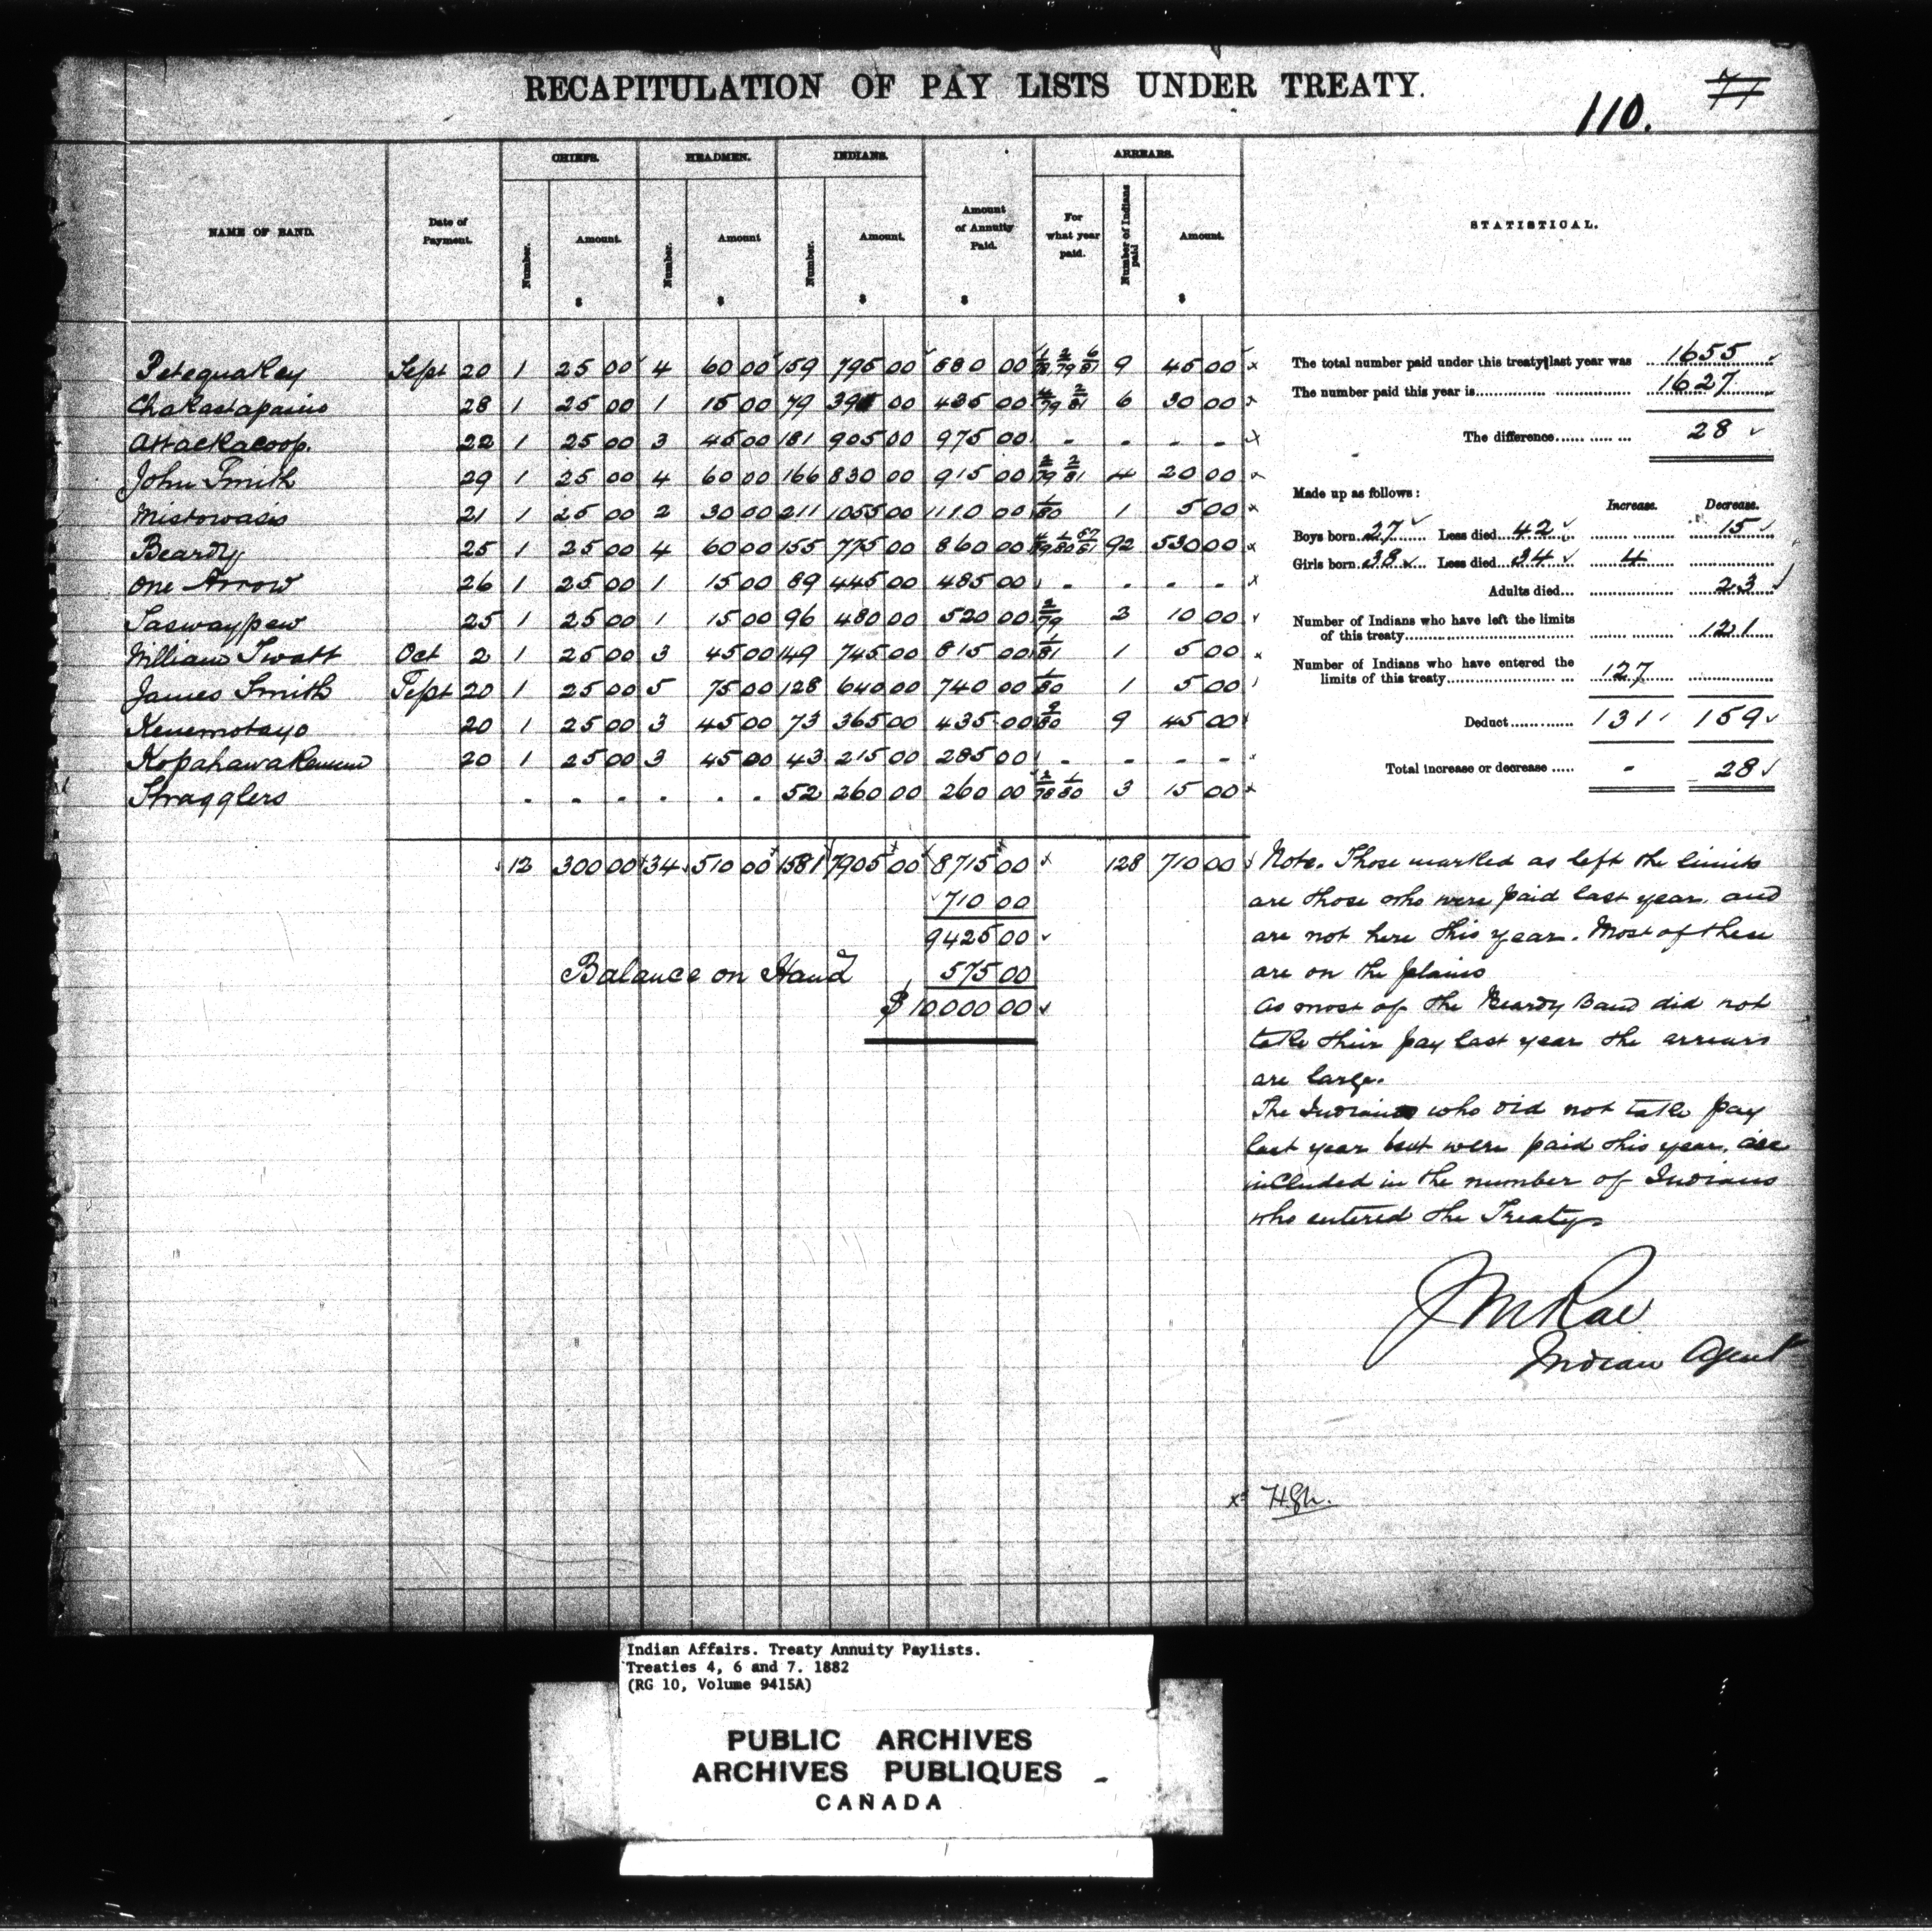 RECAPITULATION OF PAY LISTS UNDER TREATY.
110. 71
NAME OF BAND. Date of Payment. CHIEFS. HEADMEN. INDIANS. Amount of Annuity Paid. ARREARS. STATISTICAL.
Number. Amount. Number. Amount Number. Amount. For what year paid. Number of Indians paid Amount.
$ $ $ $ $
Petequakey Sept 20 1 25 00 4 60 00 159 795 00 880 00 1/78 2/79 6/81 9 45 00
Chakastapasins 28 1 25 00 1 15 00 79 395 00 435 00 4/79 2/81 6 30 00
Attackacoop. 22 1 25 00 3 45 00 181 905 00 975 00 - - - -
John Smith 29 1 25 00 4 60 00 166 830 00 915 00 2/79 2/81 4 20 00
Mistowasis 21 1 25 00 2 30 00 211 1055 00 1110 00 1/80 1 5 00
Beardy 25 1 25 00 4 60 00 155 775 00 860 00 92 530 00
One Arrow 26 1 25 00 1 15 00 89 445 00 485 00 - - - -
Saswaypew 25 1 25 00 1 15 00 96 480 00 520 00 2/79 2 10 00
William Twatt Oct 2 1 25 00 3 45 00 149 745 00 815 00 1/81 1 5 00
James Smith Sept 20 1 25 00 5 75 00 128 640 00 740 00 1/80 1 5 00
Kenemotayo 20 1 25 00 3 45 00 73 365 00 435 00 9/80 9 45 00
Kopahawakenum 20 1 25 00 3 45 00 43 215 00 285 00 - - - -
Stragglers - - - - - - 52 260 00 260 00 2/78 1/80 3 15 00
12 300 00 34 510 00 1581 7905 00 8715 00 128 710 00
710 00
9425 00
Balance on Hand 575 00
$ 10000 00
The total number paid under this treaty last year was 1655
The number paid this year is 1627
The difference 28
Made up as follows: Increase. Decrease.
Boys born 27 Less died 42 15
Girls born 38 Less died 34 4
Adults died 23
Number of Indians who have left the limits
of this treaty 121
Number of Indians who have entered the
limits of this treaty 127
Deduct 131 159
Total increase or decrease - 28
Note. Those marked as left the limits
are those who were paid last year. and
are not here this year. Most of these
are on the plains
As most of the Beardy Band did not
take their pay last year the arrears
are large.
The Indians who did not take pay
last year but were paid this year, are
included in the number of Indians
who entered the Treaty
J M Rae
Indian Agent
Indian Affairs. Treaty Annuity Paylists.
Treaties 4, 6 and 7. 1882
(RG 10, Volume 9415A)
PUBLIC ARCHIVES
ARCHIVES PUBLIQUES
CANADA